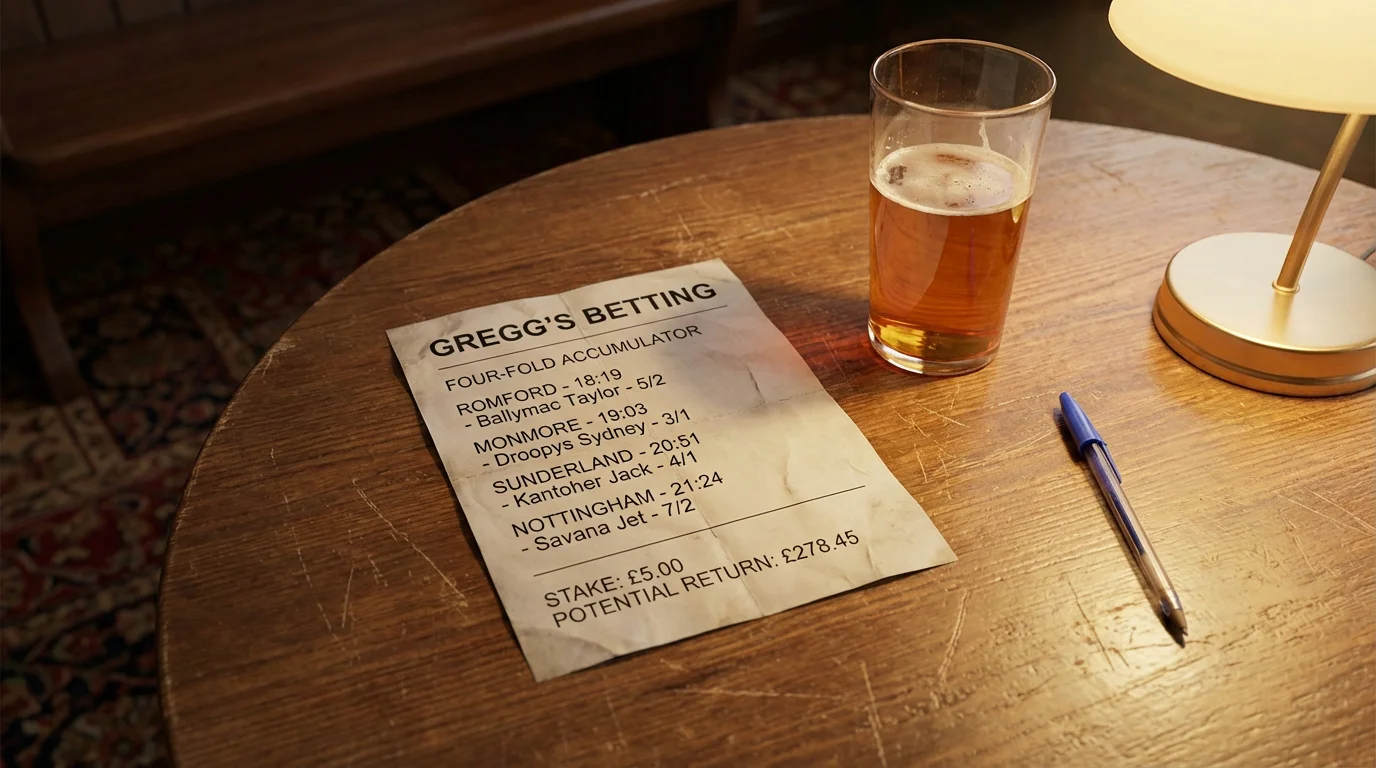 GREGG'S BETTING
FOUR-FOLD ACCUMULATOR
ROMFORD - 18:19
- Ballymac Taylor - 5/2
MONMORE - 19:03
- Droopys Sydney - 3/1
SUNDERLAND - 20:51
- Kantoher Jack - 4/1
NOTTINGHAM - 21:24
- Savana Jet - 7/2
STAKE: £5.00
POTENTIAL RETURN: £278.45